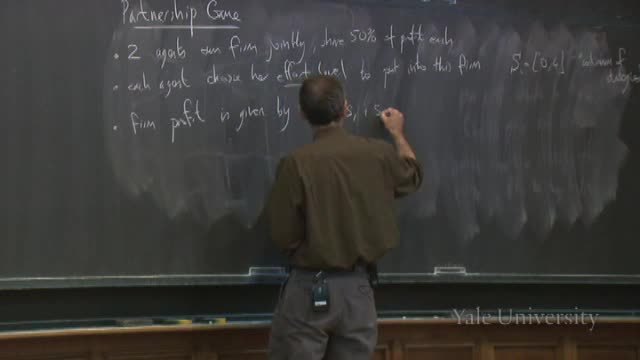 Partnership Game
• 2 agents own firm jointly, share 50% of profit each
• each agent chooses her effort level to put into this firm Sᵢ = [0,4]
• firm profit is given by S₁, S
Yale University